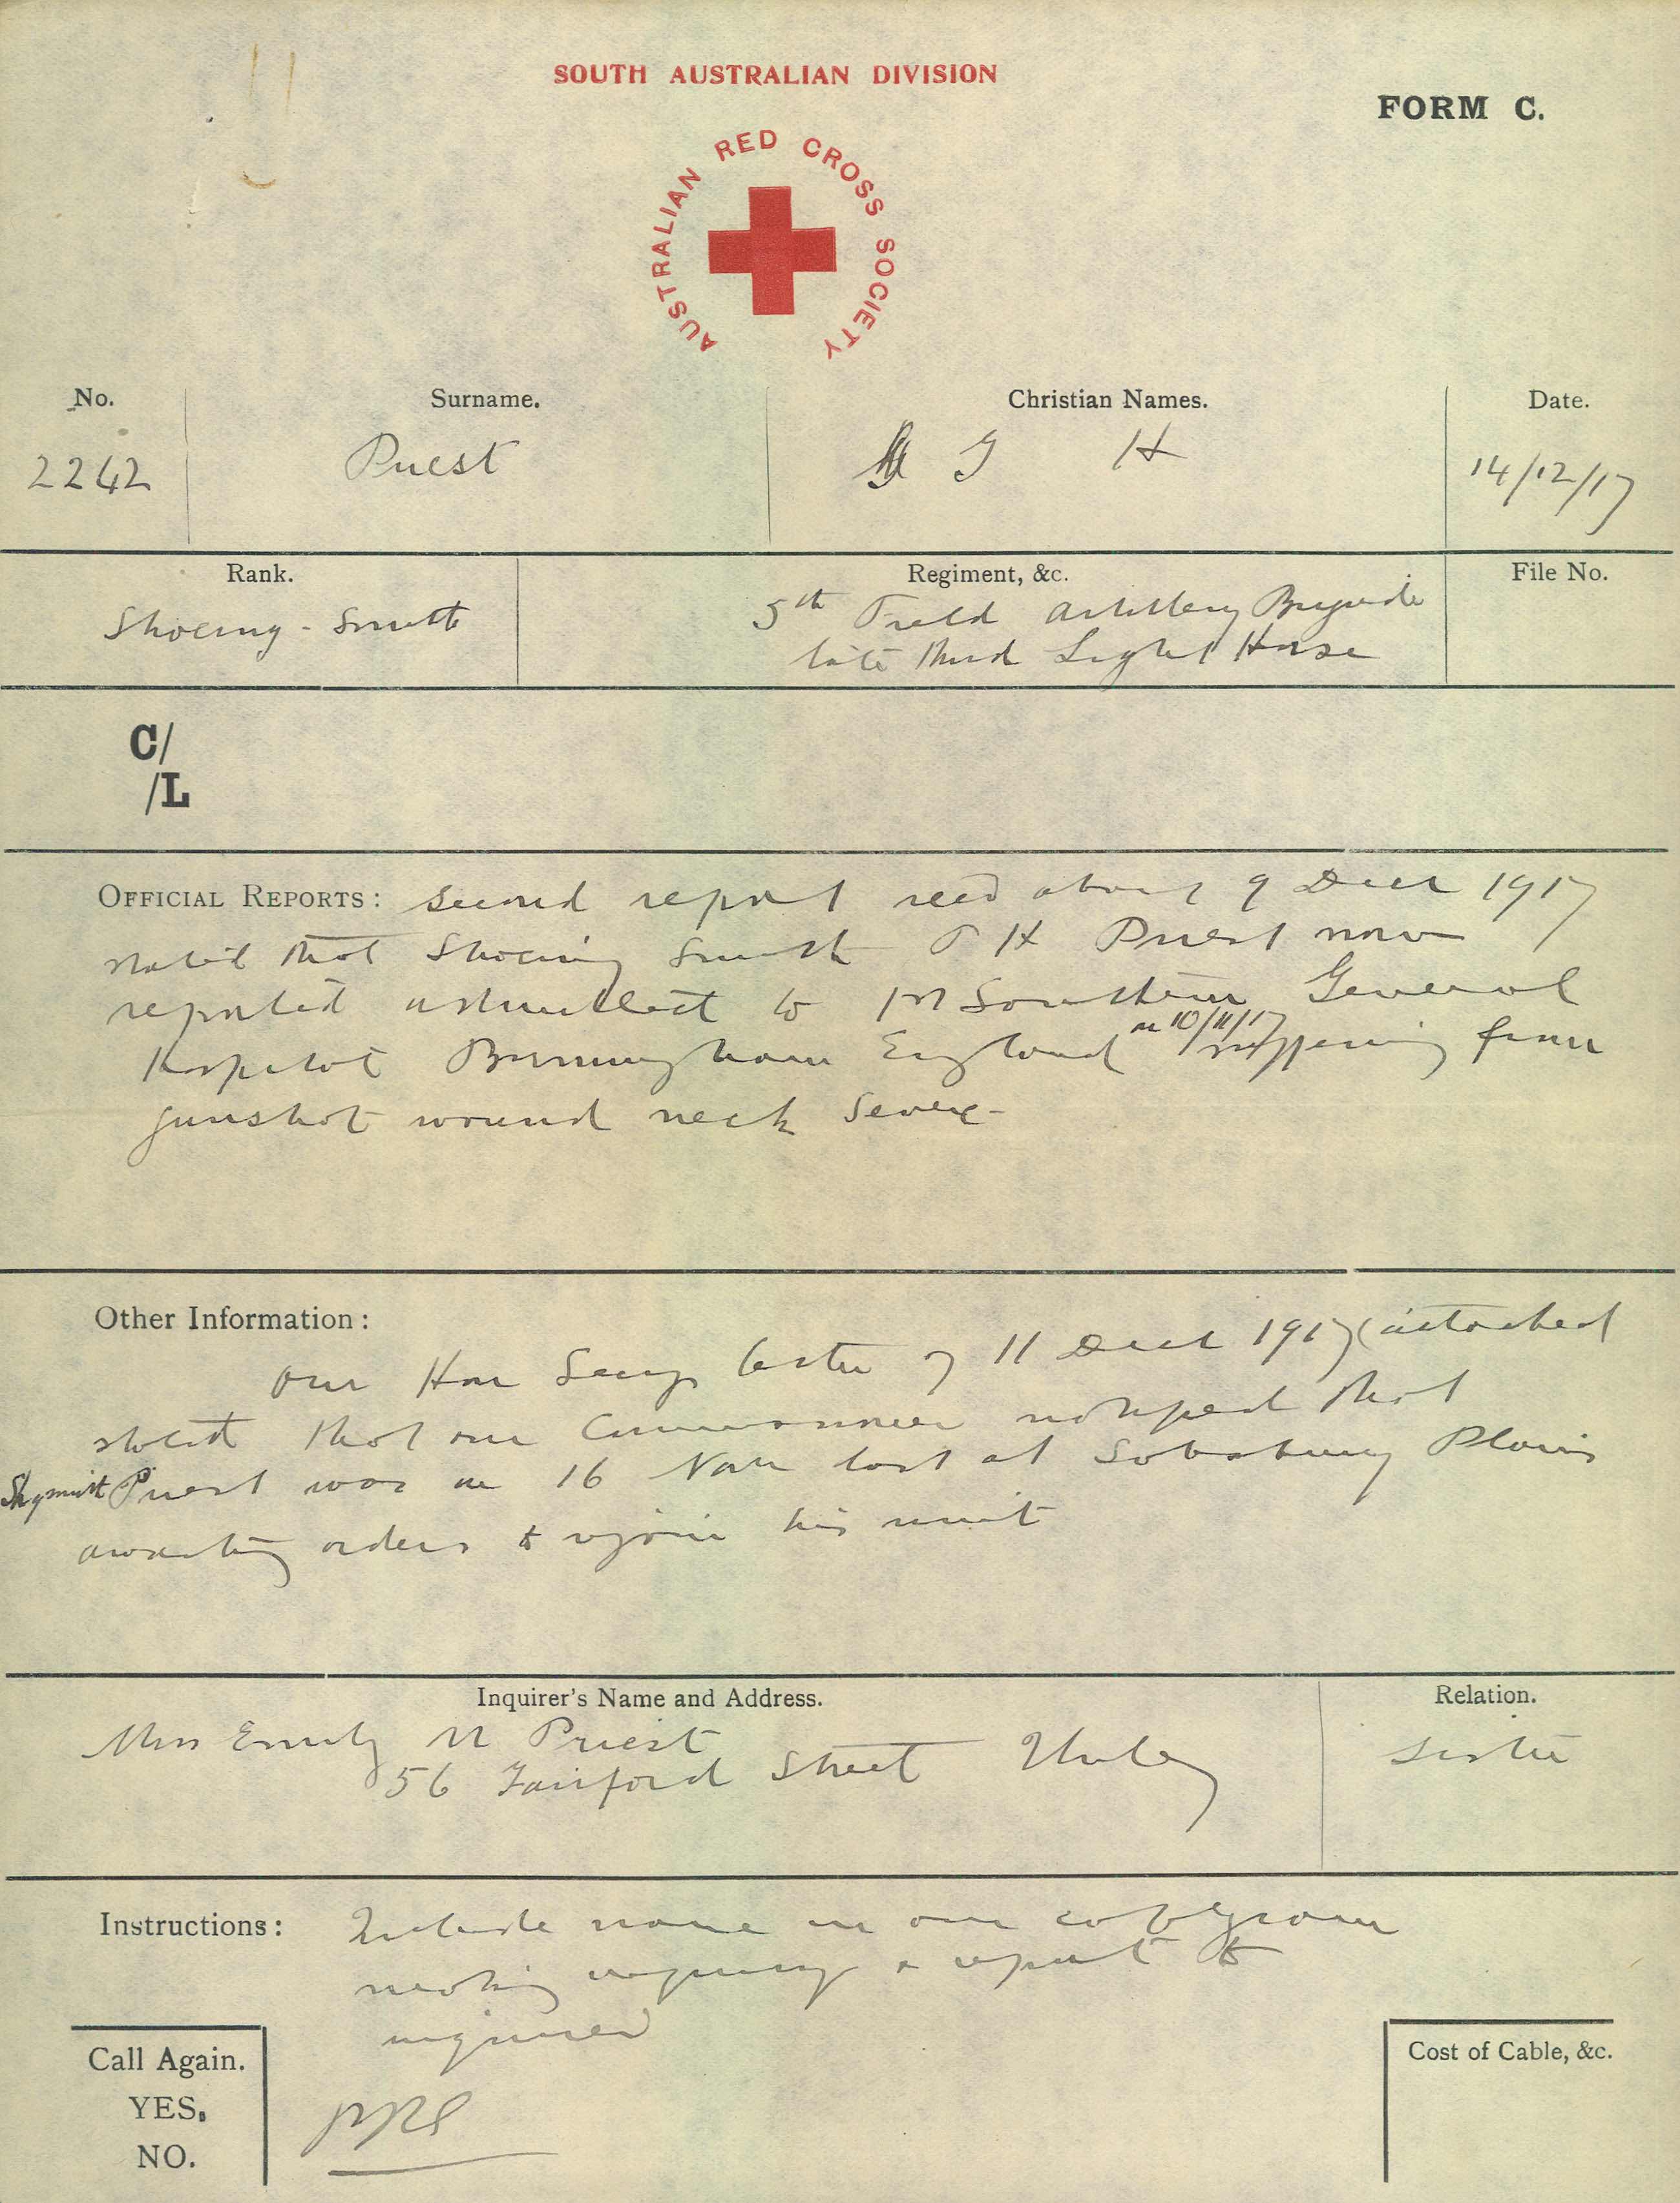 SOUTH AUSTRALIAN DIVISION
FORM C.
AUSTRALIAN RED CROSS SOCIETY
No.
Surname.
Christian Names.
Date.
2242
Priest
J H
14/12/17
Rank.
Regiment, &c.
File No.
Shoeing-Smith
5th Field Artillery Brigade
late Third Light Horse
C/
/L
OFFICIAL REPORTS: Second report recd about 9 Decr 1917
stated that Shoeing Smith T H Priest now
reported admitted to 1st Southern General
Hospital Birmingham England on 10/11/17 suffering from
gunshot wound neck severe-
Other Information:
Our Hon Secys letter of 11 Decr 1917 (attached
stated that our Commissioner notified that
Priest was on 16 Novr last at Salisbury Plains
awaiting orders to rejoin his unit
Inquirer's Name and Address.
Relation.
Miss Emily M Priest
56 Fairford Street Unley
Sister
Instructions:
Include name in our cablegram
making inquiry & report to
inquirer
Call Again.
YES.
NO.
Cost of Cable, &c.